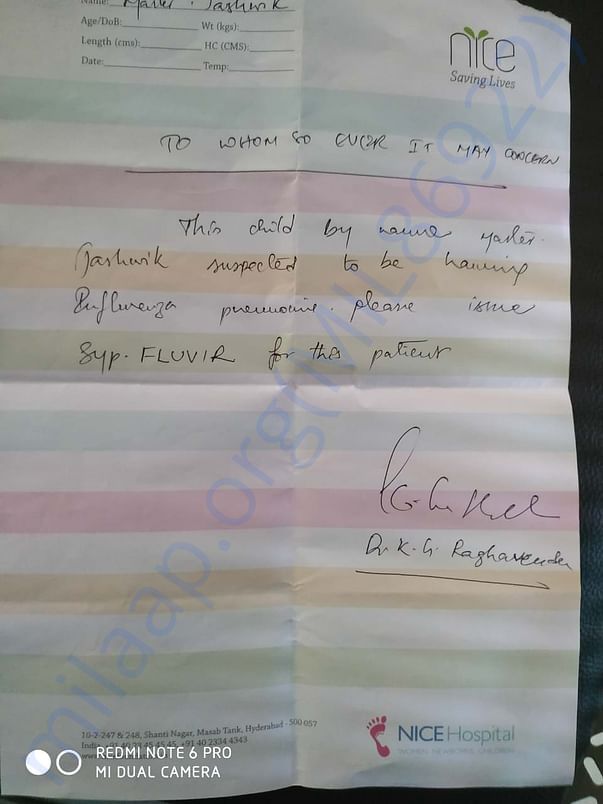 Name: Master. Jashwik
Age/DoB: Wt (kgs):
Length (cms): HC (CMS):
Date: Temp:
nice
Saving Lives
TO WHOM SO EVER IT MAY CONCERN
This child by name Master.
Jashwik suspected to be having
Influenza pneumonia. please issue
Syp. FLUVIR for this patient
Dr. K. G. Raghavender
10-2-247 & 248, Shanti Nagar, Masab Tank, Hyderabad - 500 057
India. +91 40 23 45 45 45, +91 40 2334 4343
NICE Hospital
WOMEN. NEWBORNS. CHILDREN
REDMI NOTE 6 PRO
MI DUAL CAMERA
milaap.org(MIL869922)